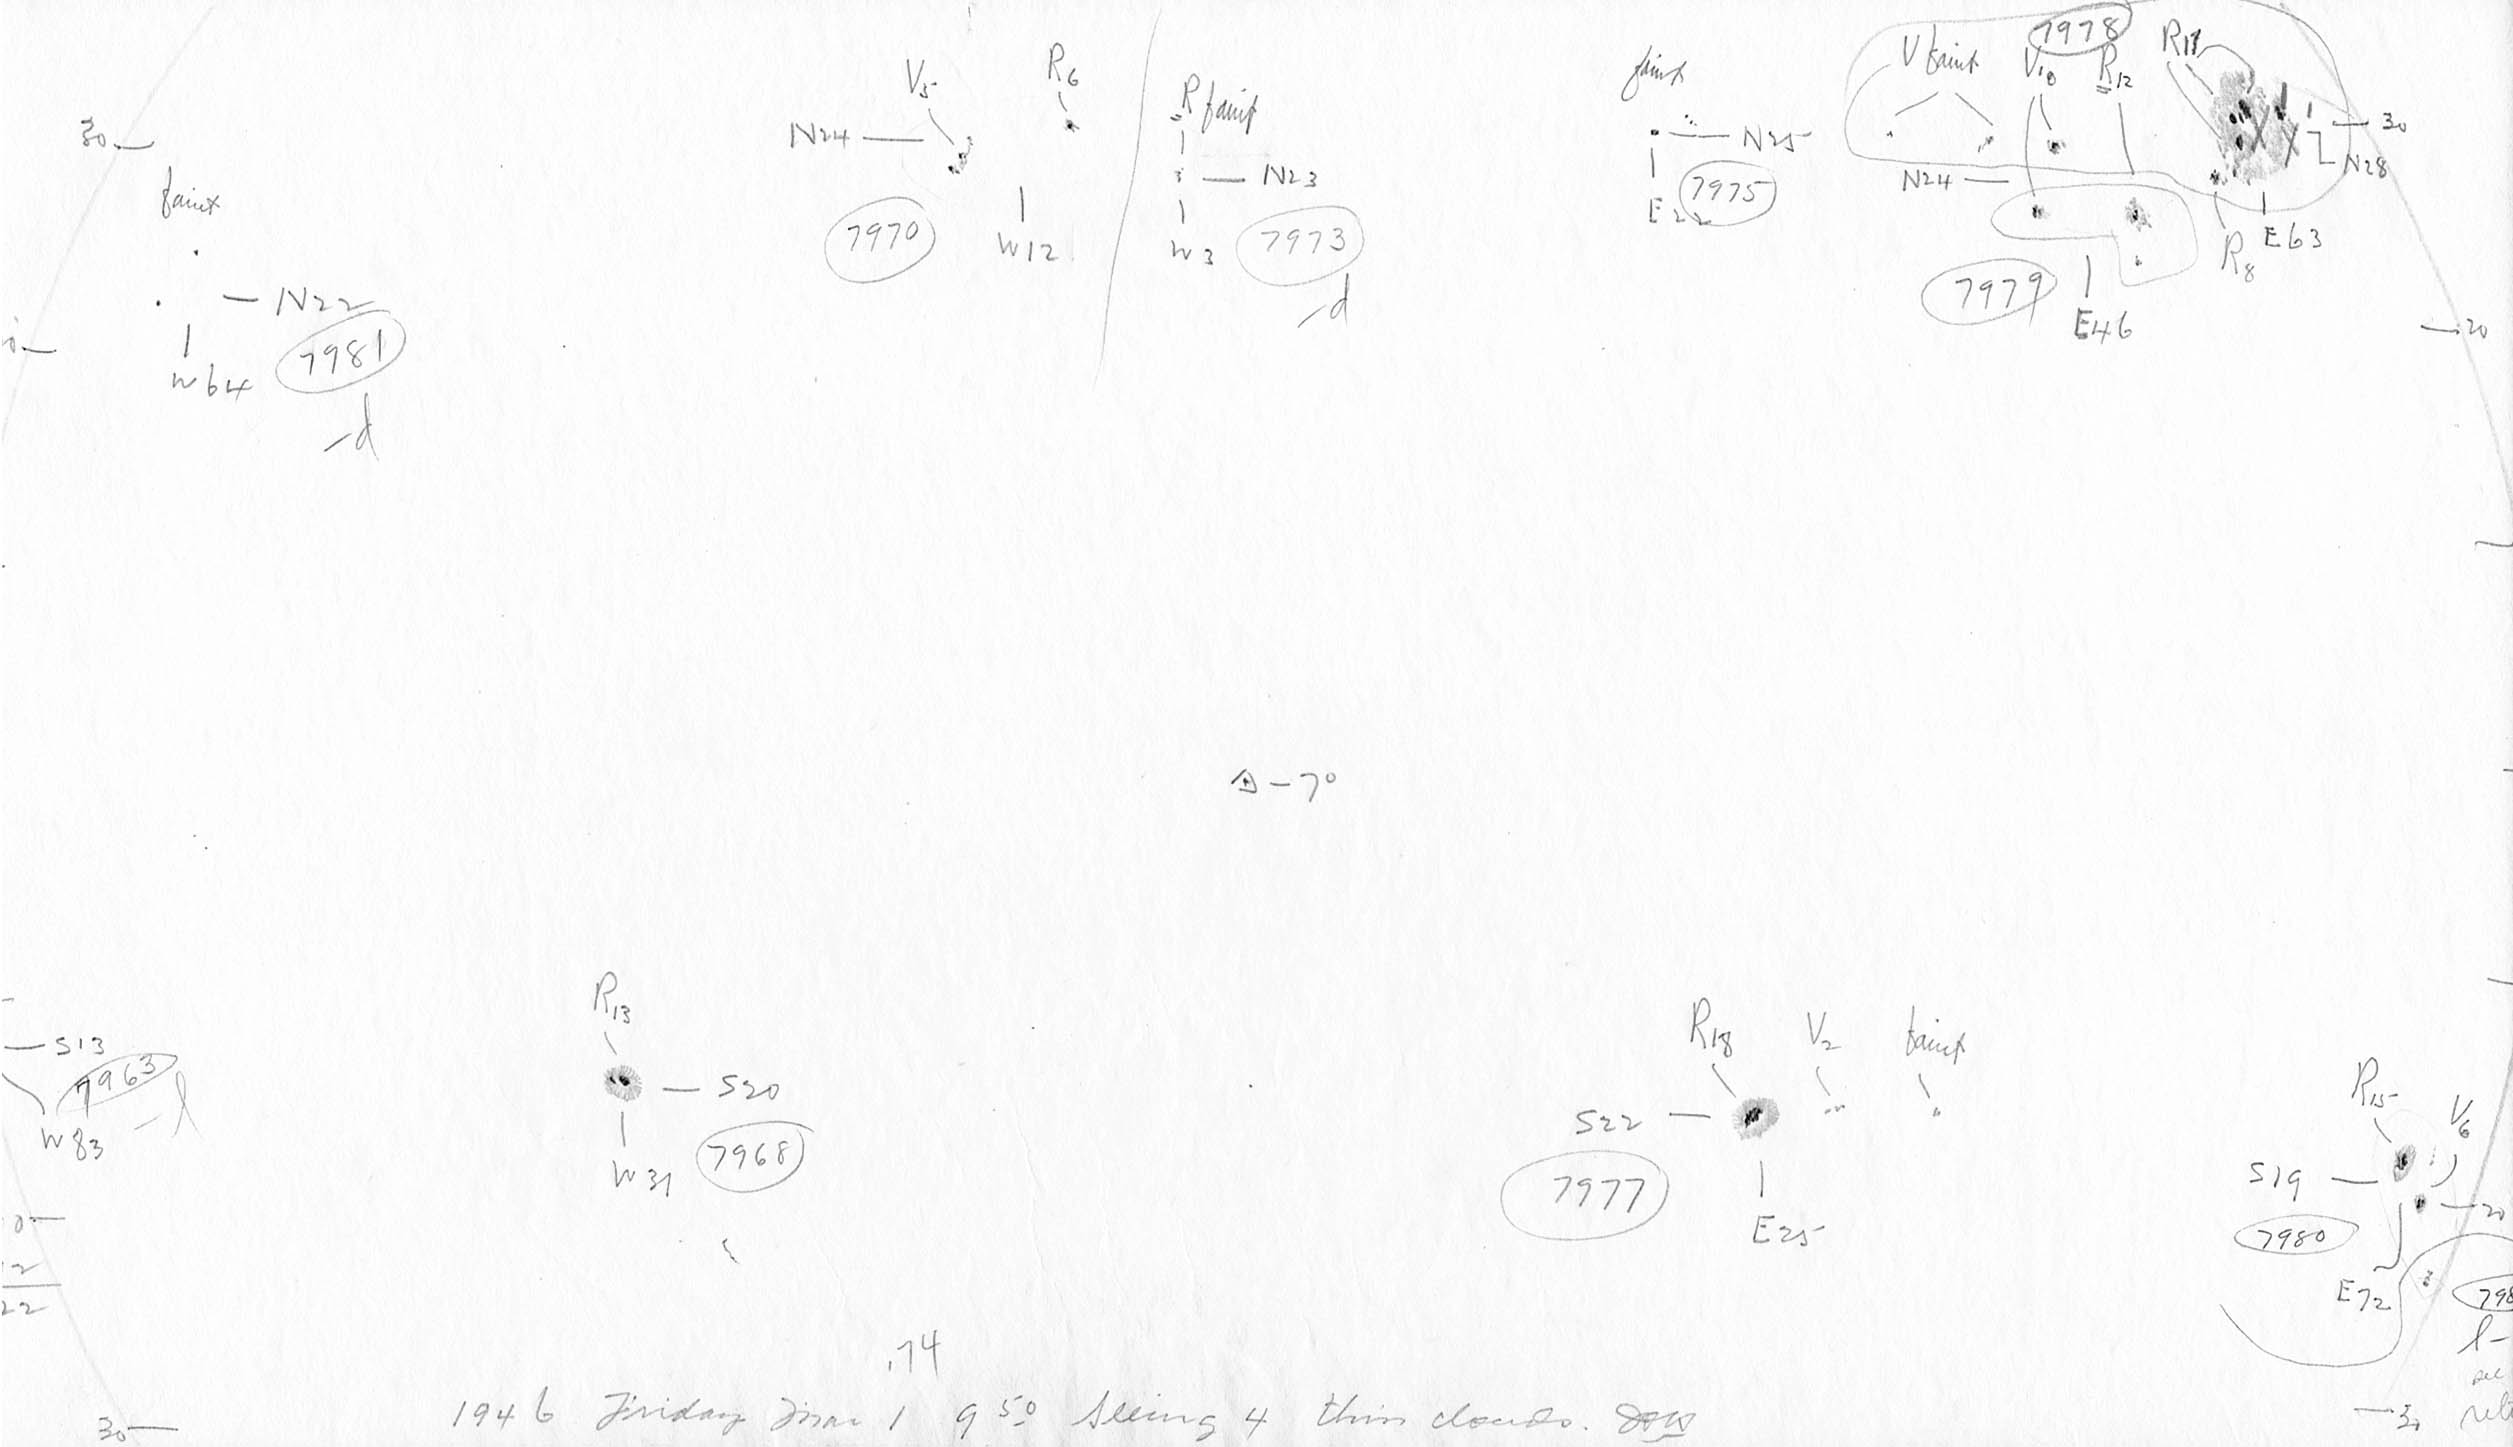 7978
V faint V10 R12 R17
V5 R6
R faint
faint
30
N24
N25
30
N28
faint
N23
7975
N24
E22
R8 E63
7970
W12
W3 7973
7979
-d
N22
E46
20
7981
W64
-d
-7°
R13
R18 V2 faint
S13
7963
-l
W83
S20
7968
W31
S22
7977
E25
R15
V6
S19
20
7980
E72
798
22
.74
1946 Friday Mar 1 9 50 Seeing 4 thin clouds.
30
30